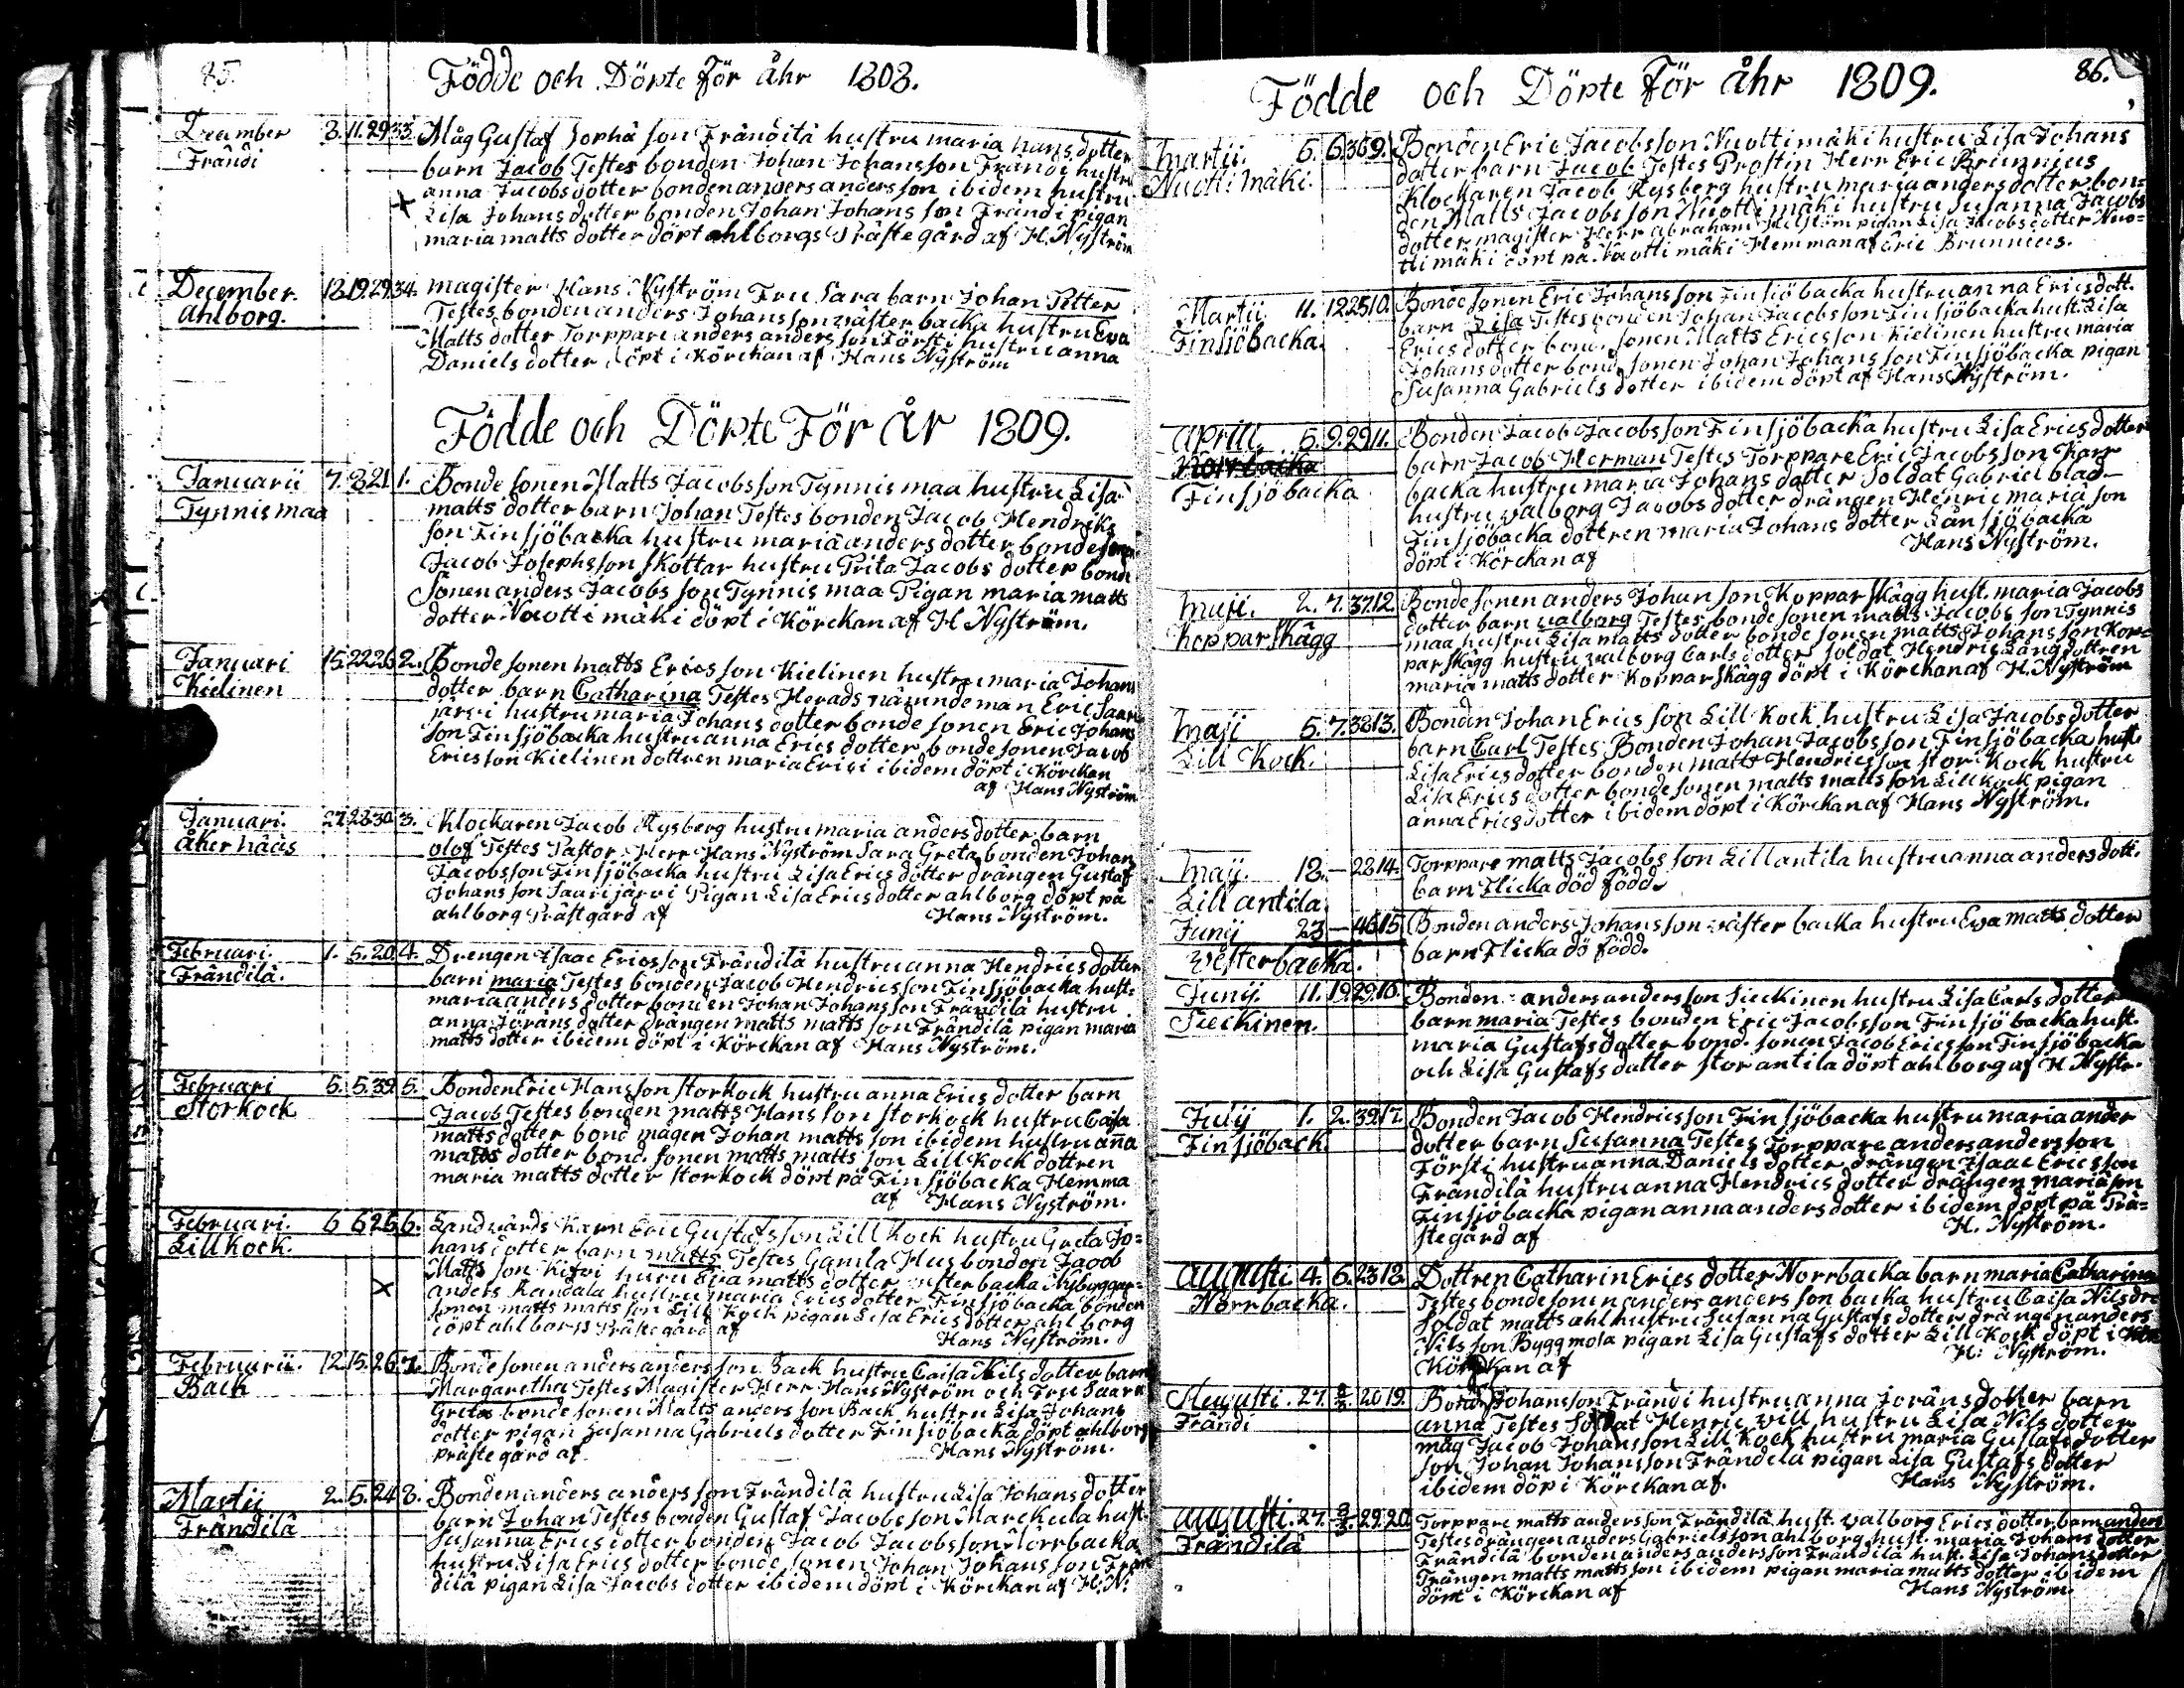 85.
Födde och Döpte för åhr 1808.
December 8. 11. 29 33. Måg Gustaf Josphä son Frändilä hustru maria hans dotter
Frändi barn Jacob Testes bonden Johan Johansson Frändi hustru
anna Jacobs dotter bonden anders anders son ibidem hustru
Lisa Johans dotter bonden Johan Johans son Frändi pigan
maria matts dotter döpt ahlborgs Präste gård af H. Nyström
December. 18. 19. 29. 34. magister Hans Nyström Fru Sara barn Johan Petter
Ahlborg. Testes bonden anders Johansson väster backa hustru Eva
Matts dotter Torppare anders anders son Försti hustru anna
Daniels dotter döpt i Körckan af Hans Nyström
Födde och Döpte För år 1809.
Januarii 7. 8. 21. 1. Bonde sonen Matts Jacobsson Tynnismaa hustru Lisa
Tynnismaa matts dotter barn Johan Testes bonden Jacob Hendriks
son Finsjöbacka hustru maria anders dotter bonde sonen
Jacob Josephsson Skottar hustru Prita Jacobs dotter bonde
Sonen anders Jacobs son Tynnis maa Pigan maria matts
dotter Nuottimäki döpt i Körckan af H Nyström.
Januari 15. 22. 26. 2. Bonde sonen matts Erics son Kielinen hustru maria Johans
Kielinen dotter barn Catharina Testes Herads nämnde man Eric Saari
järvi hustru maria Johans dotter bonde sonen Eric Johans
son Finsjöbacka hustru anna Erics dotter bonde sonen Jacob
Ericsson Kielinen dottren maria Erici ibidem döpt i Körckan
af Hans Nyström
Januari. 27. 28. 30. 3. Klockaren Jacob Rysberg hustru maria anders dotter barn
Åker hääs olof Testes Pastor Herr Hans Nyström Sara Greta bonden Johan
Jacobsson Finsjöbacka hustru Lisa Erics dotter drängen Gustaf
Johans son Saarijärvi Pigan Lisa Erics dotter ahlborg döpt på
ahlborg Präst gård af Hans Nyström.
Februari. 1. 5. 20. 4. Drengen Isaac Ericsson Frändilä hustru anna Hendrics dotter
Frändilä. barn maria Testes bonden Jacob Hendricsson Finsjöbacka hust:
maria anders dotter bonden Johan Johansson Frändilä hustru
anna Jörans dotter drängen matts matts son Frändilä pigan maria
matts dotter ibidem döpt i Körckan af Hans Nyström.
Februari 5. 5. 39. 5. Bonden Eric Hansson Storkock hustru anna Erics dotter barn
Storkock Jacob Testes bonden matts Hans son Storkock hustru Caisa
matts dotter bond mågen Johan matts son ibidem hustru anna
matts dotter bond. sonen matts matts son Lill Kock dottren
maria matts dotter Storkock döpt på Finsjöbacka Hemma
af Hans Nyström.
Februari. 6 6 26 6. Landvärds Karn Eric Gustafsson Lill Kock hustru Greta Jo=
Lill Kock. hans dotter barn matts Testes Gamla Husbonden Jacob
Matts son Kifvi huru Eva matts dotter vesterbacka Nybyggar=
anders Kandala hustru maria Erics dotter Finsjöbacka bonden
sonen matts matts son Lill Kock pigan Lisa Erics dotter ahlborg
döpt ahlborgs Präste gård af
Hans Nyström.
Februarii. 12. 15. 26. 7. Bonde sonen anders anders son Back hustru Caisa Nils dotter barn
Back Margaretha Testes Magister Herr Hans Nyström och Fru Saara
Greta bonde sonen Matts anders son Back hustru Lisa Johans
dotter pigan Susanna Gabriels dotter Finsjöbacka döpt ahlborgs
präste gård af Hans Nyström.
Martii 2. 5. 24. 8. Bonden anders anders son Frändilä hustru Lisa Johans dotter
Frändilä barn Johan Testes bonden Gustaf Jacobsson Marckula hust
Susanna Erics dotter bonden Jacob Jacobsson Norrbacka
hustru Lisa Erics dotter bonde sonen Johan Johans son Frän
dilä pigan Lisa Jacobs dotter ibidem döpt i Körckan af H. N.
86.
Födde och Döpte För åhr 1809.
Martii. 5. 6. 36 9. Bonden Eric Jacobsson Nuottimäki hustru Lisa Johans
Nuottimäki. dotter barn Jacob Testes Prostin Herr Eric Brunnius
Klockaren Jacob Rysberg hustru maria anders dotter bon=
den Matts Jacobsson Nuottimäki hustru Susanna Jacobs
dotter magister Herr Abraham pigan Lisa Jacobs dotter Nuo=
ttimäki döpt på Nuottimäki Hemman af Eric Brunnius.
Martii 11. 12. 25 10. Bonde sonen Eric Johansson Finsjöbacka hustru anna Ericsdott.
Finsjöbacka. barn Lisa Testes bonden Johan Jacobsson Finsjöbacka hust. Lisa
Erics dotter bond. sonen Matts Ericsson Kielinen hustru maria
Johans dotter bond. sonen Johan Johans son Finsjöbacka pigan
Susanna Gabriels dotter ibidem döpt af Hans Nyström.
Aprill. 5. 9. 29 11. Bonden Jacob Jacobsson Finsjöbacka hustru Lisa Erics dotter
Norrbacka barn Jacob Herman Testes Torppare Eric Jacobsson Karr
Finsjöbacka backa hustru maria Johans dotter Soldat Gabriel blad
hustru valborg Jacobs dotter drängen Henric maria son
Finsjöbacka dottren maria Johans dotter Länsjöbacka
döpt i Körckan af Hans Nyström.
Maji. 2. 7. 37 12. Bonde sonen anders Johan son Kopparskägg hust. maria Jacobs
Kopparskägg dotter barn valborg Testes bonde sonen matts Jacobs son Tynnis
maa hustru Lisa matts dotter bonde sonen matts Johansson Kop=
parskägg hustru valborg Carls dotter soldat Hendric Lång dottren
maria matts dotter Kopparskägg döpt i Körckan af H. Nyström
Maji 5. 7. 38 13. Bondn Johan Erics son Lill Kock hustru Lisa Jacobs dotter
Lill Kock. barn Carl Testes Bonden Johan Jacobsson Finsjöbacka hust.
Lisa Erics dotter bonden matts Hendricsson Stor Kock hustru
Lisa Erics dotter bonde sonen matts matts son Lill Kock pigan
anna Erics dotter ibidem döpt i Körckan af Hans Nyström.
Maij. 18. — 28 14. Torppare matts Jacobs son Lillantila hustru anna anders dott.
Lillantila. barn Flicka död född.
Junij 23 — 46 15. Bonden anders Johansson väster backa hustru Eva matts dotter
Vesterbacka. barn Flicka dö född.
Junij. 11. 19. 29. 16. Bonden anders anders son Sieckinen hustru Lisa Carls dotter
Sieckinen. barn maria Testes bonden Eric Jacobsson Finsjöbacka hust.
maria Gustafs dotter bond. sonen Jacob Ericsson Finsjöbacka
och Lisa Gustafs dotter Storantila döpt ahlborg af H. Nystr.
Julij 1. 2. 39 17. Bonden Jacob Hendricsson Finsjöbacka hustru maria ander
Finsjöback. dotter barn Susanna Testes Torppare anders anders son
Försti hustru anna Daniels dotter drängen Isaac Ericsson
Frändilä hustru anna Hendrics dotter drängen maria son
Finsjöbacka pigan anna anders dotter ibidem döpt på Prä=
stegård af H. Nyström.
Augusti 4. 6. 23 18. Dottren Catharin Erics dotter Norrbacka barn maria Catharina
Norrbacka. Testes bonde sonen anders anders son backa hustru Caisa Nils dr
Soldat matts ahl hustru Susanna Gustafs dotter drängen anders
Nils son Byggmola pigan Lisa Gustafs dotter Lill Kock döpt i
Körckan af H: Nyström.
Augusti. 27. 3/9. 20 19. Bondn Johansson Frändi hustru anna Jorans dotter barn
Frändi anna Testes Soldat Henric vill hustru Lisa Nils dotter
måg Jacob Johansson Lill Kock hustru maria Gustafs dotter
son Johan Johansson Frändelä pigan Lisa Gustafs dotter
ibidem döpt i Körckan af. Hans Nyström.
Augusti. 27. 3/9. 29. 20. Torppare matts anders son Frändilä hust. valborg Erics dotter barn anders
Frändilä Testes drängen anders Gabrielsson ahlborg hust. maria Johans dotter
Frändilä bonden anders anders son Frändilä hust. Lisa Johans dotter
Drängen matts matts son ibidem pigan maria matts dotter ibidem
döpt i Körckan af Hans Nyström.